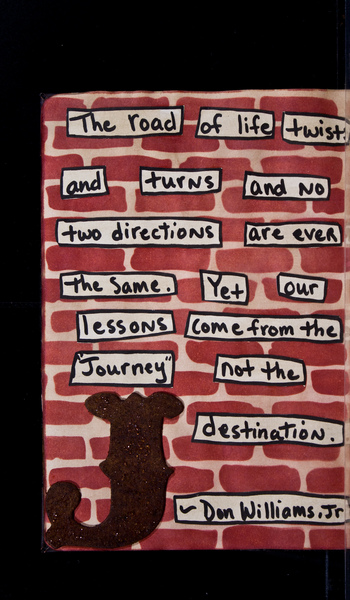 The road of life twists
and turns and no
two directions are ever
the same. Yet our
lessons come from the
"Journey" not the
destination.
J
~ Don Williams, Jr